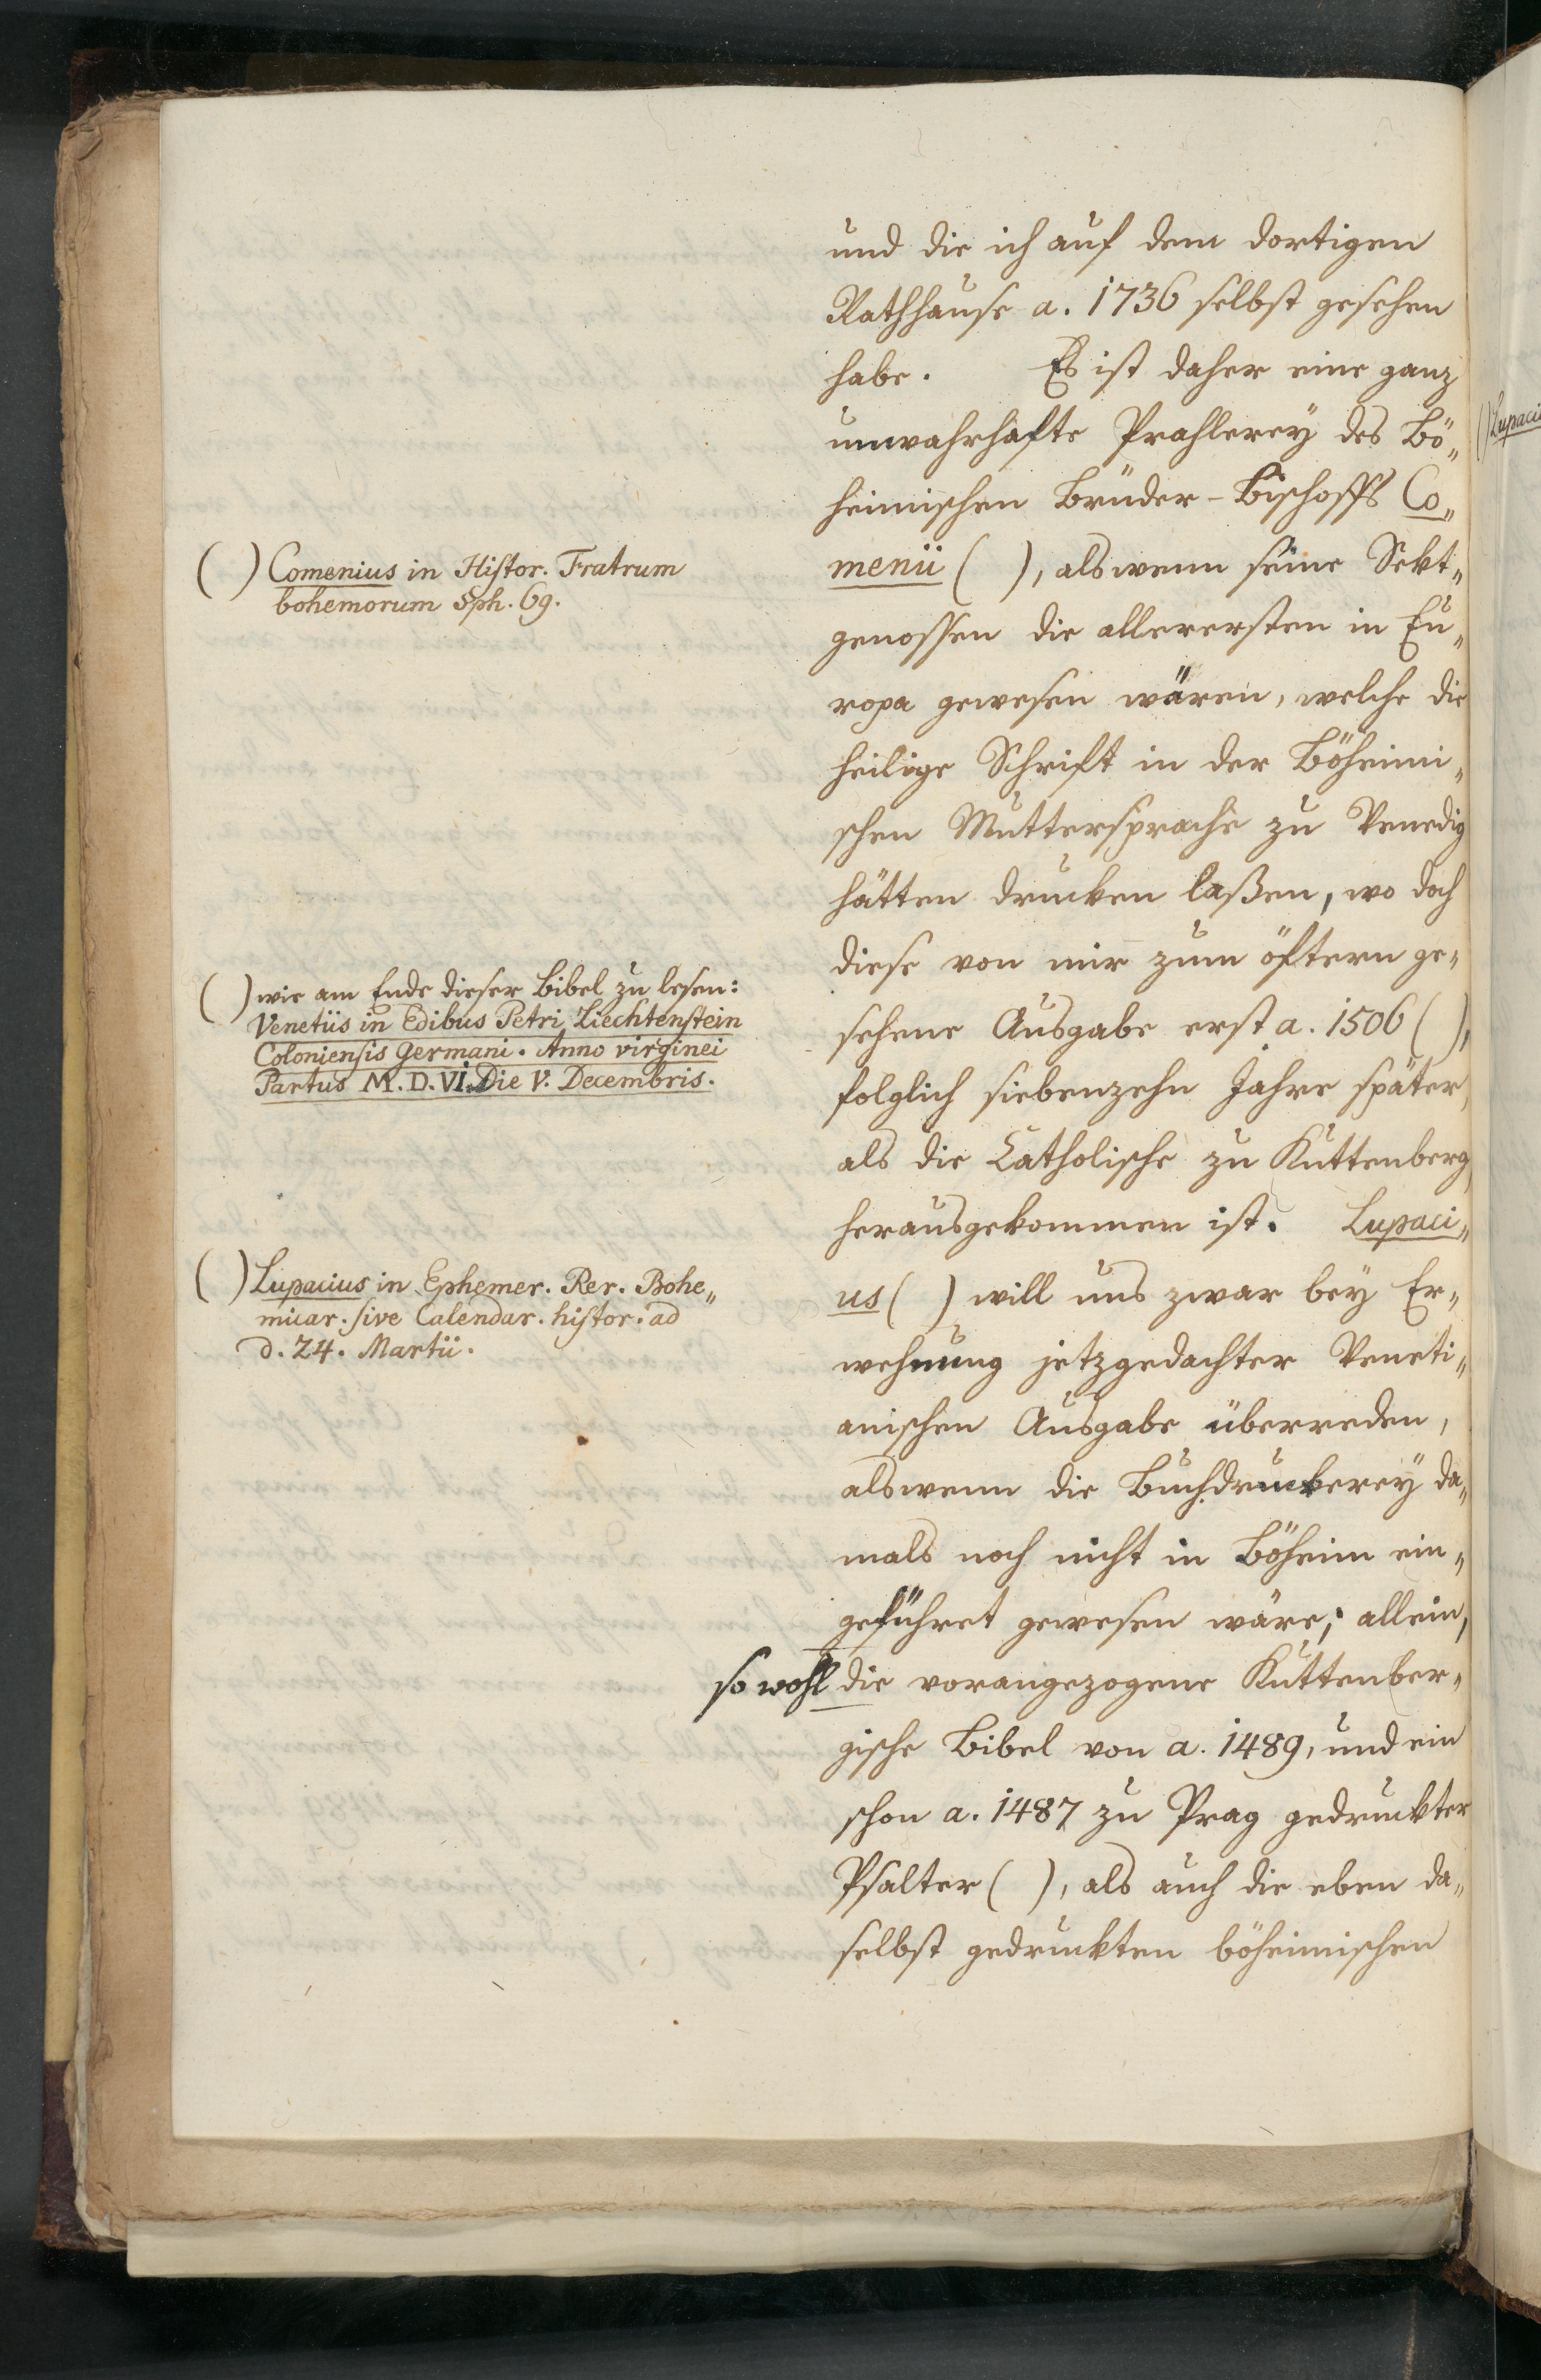 und die ich auf dem dortigen
Rathhause a. 1736 selbst gesehen
habe. Es ist daher eine ganz
unwahrhafte Prahlerey des Bö„
heimischen Brüder-Bischoffs Co„
menii ( ), alswenn seine Sekt„
genossen die allerersten in Eu„
ropa gewesen wären, welche die
heilige Schrift in der Böheimi„
schen Muttersprache zu Venedig
hätten drucken laßen, wo doch
diese von mir zum öftern ge„
sehene Ausgabe erst a. 1506 ( ),
folglich siebenzehn Jahre später,
als die Catholische zu Kuttenberg
herausgekommen ist. Lupaci„
us ( ) will uns zwar bey Er„
wehnung jetzgedachter Veneti„
anischen Ausgabe überreden,
alswenn die Buchdruckerey da„
mals noch nicht in Böheim ein„
geführet gewesen wäre; allein,
so wohl die vorangezogene Kuttenber„
gische Bibel von a. 1489, und ein
schon a. 1487 zu Prag gedruckter
Psalter ( ), als auch die eben da„
selbst gedruckten böheimischen
( ) Comenius in Histor. Fratrum
bohemorum §ph. 69.
( ) wie am Ende dieser Bibel zu lesen:
Venetiis in Edibus Petri Liechtenstein
Coloniensis Germani. Anno virginei
Partus M. D. VI. Die V. Decembris.
( ) Lupacius in Ephemer. Rer. Bohe„
micar. sive Calendar. histor. ad
d. 24. Martii.